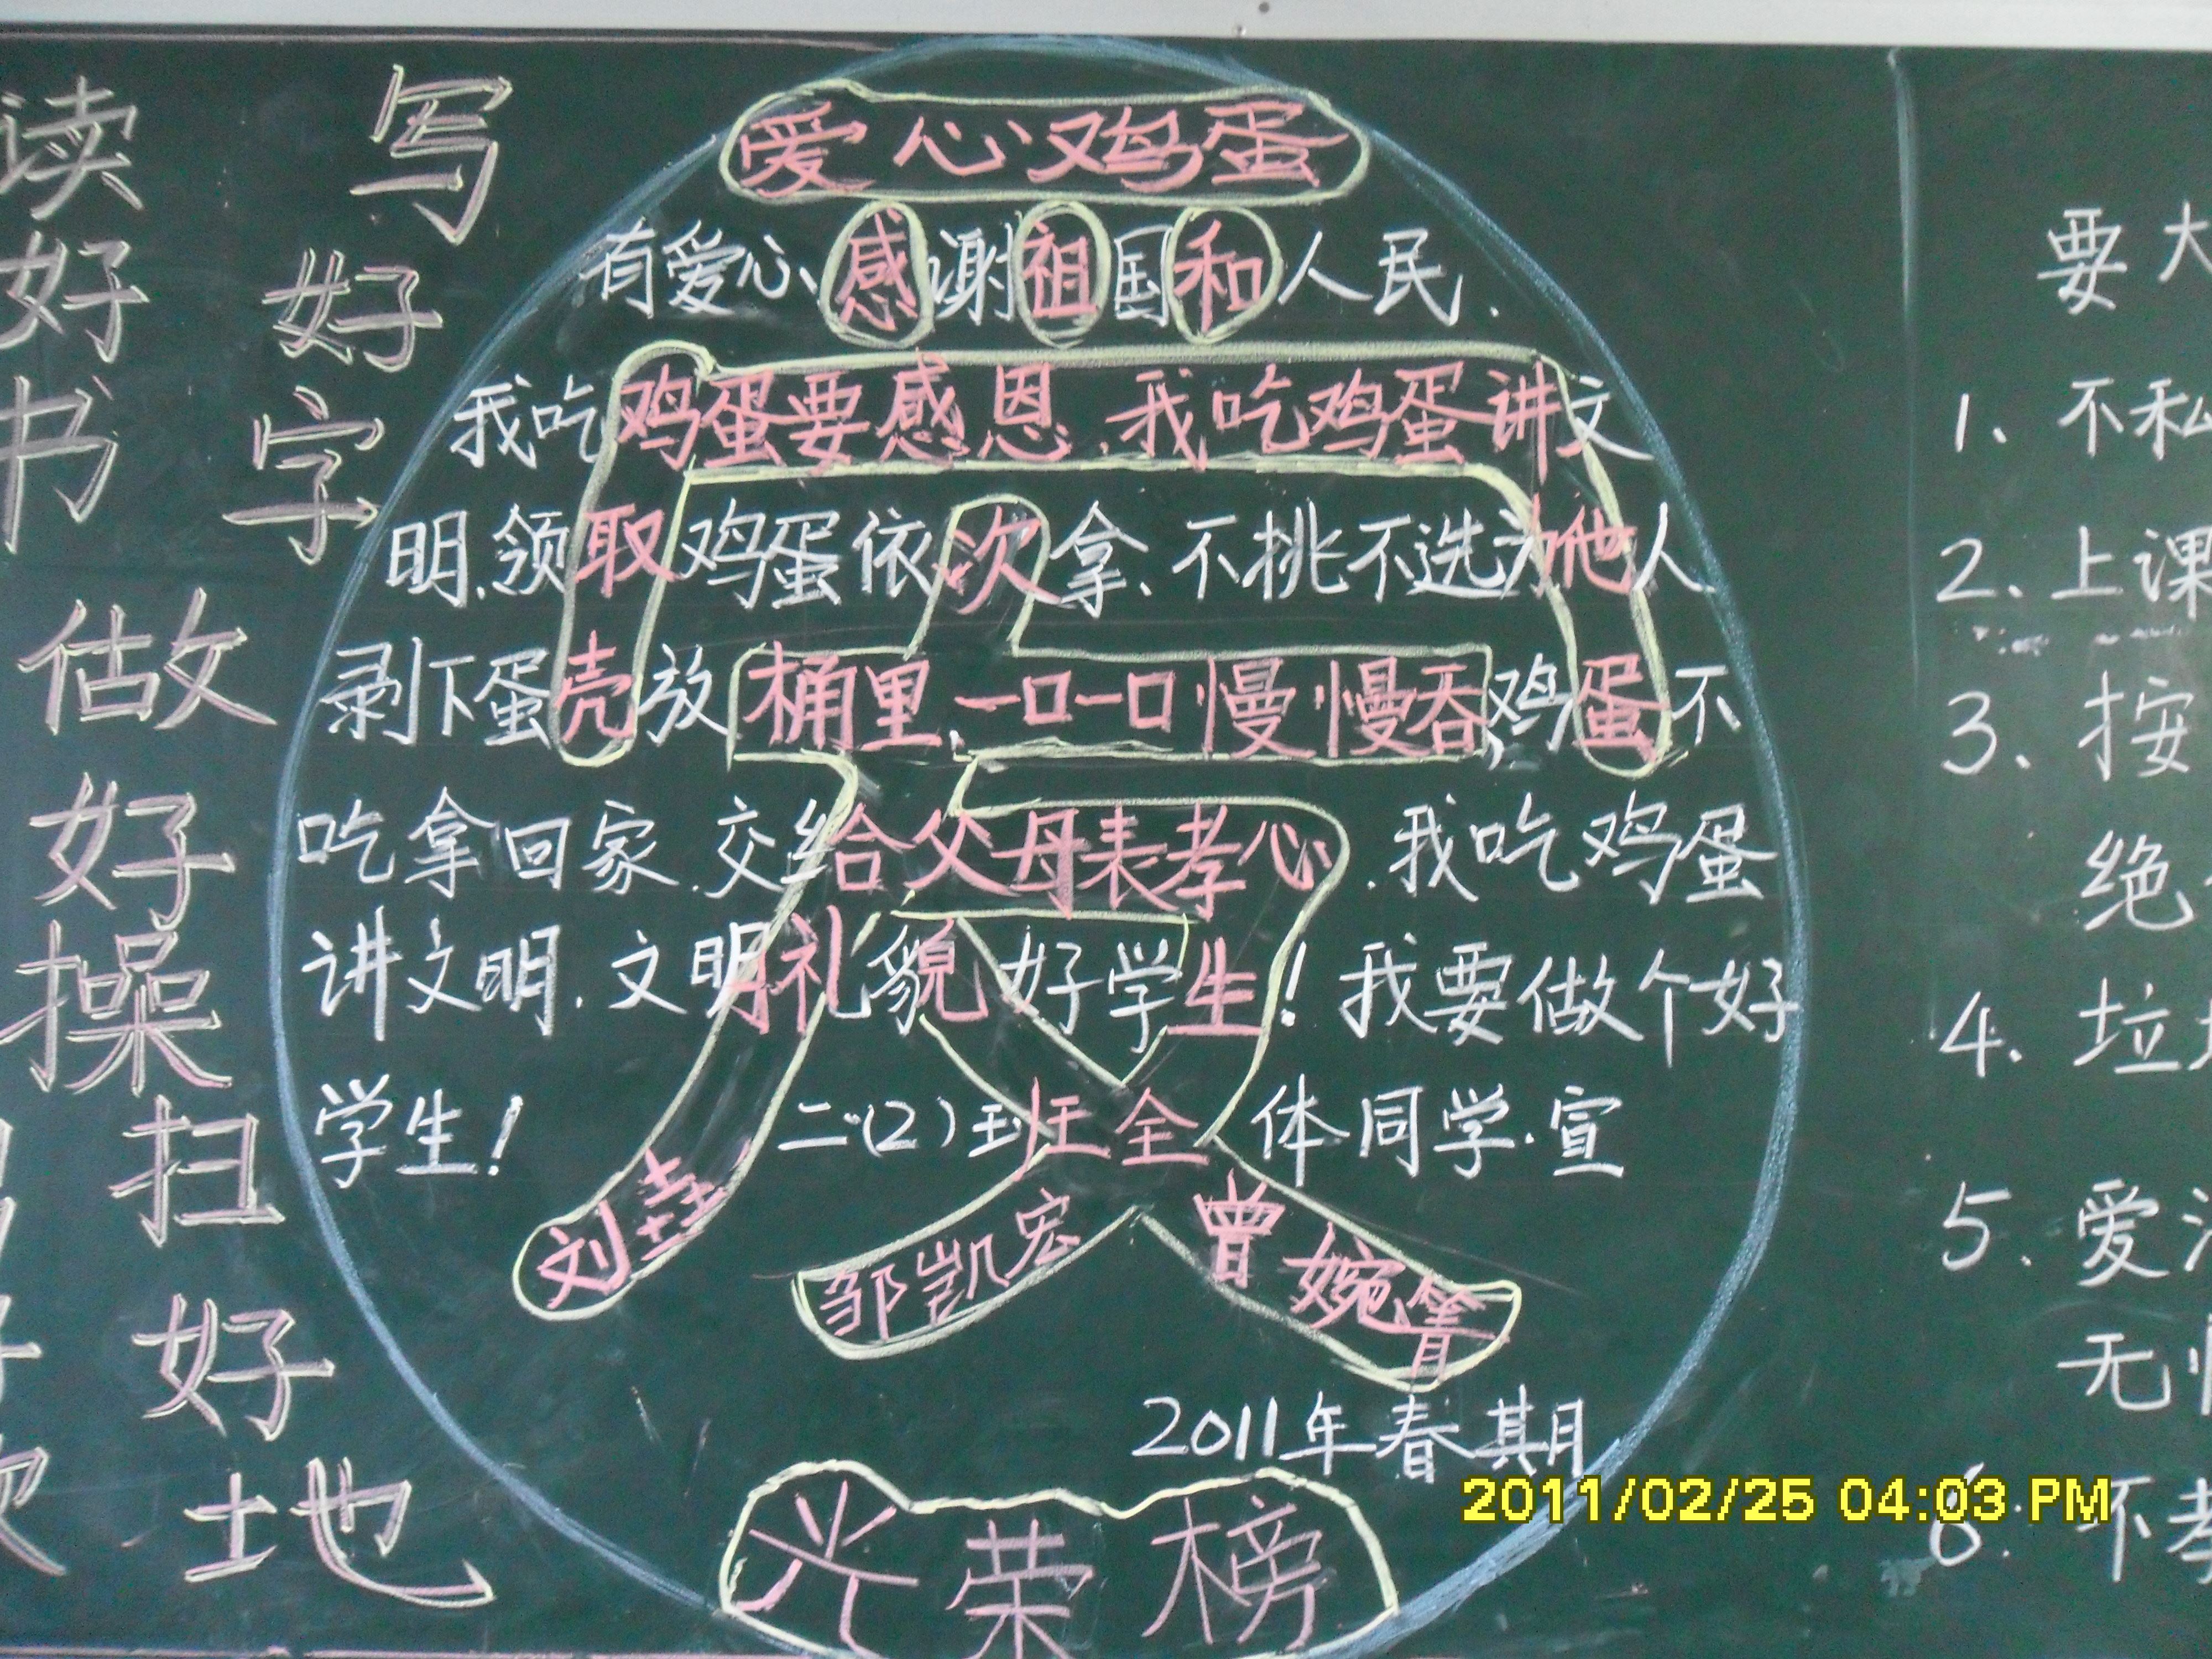 读好书
写好字
做好操
扫好地
爱心鸡蛋
有爱心感谢祖国和人民.
我吃鸡蛋要感恩.我吃鸡蛋讲文
明.领取鸡蛋依次拿、不挑不选为他人
剥下蛋壳放桶里、一口一口慢慢吞,鸡蛋不
吃拿回家.交给父母表孝心.我吃鸡蛋
讲文明.文明礼貌好学生!我要做个好
学生!
二(2)班全体同学.宣
邹凯宏
曾婉箐
2011年春期
光荣榜
要大
1、不私
2、上课
3、按
绝
4、垃
5、爱
无
6.不孝
2011/02/25 04:03 PM